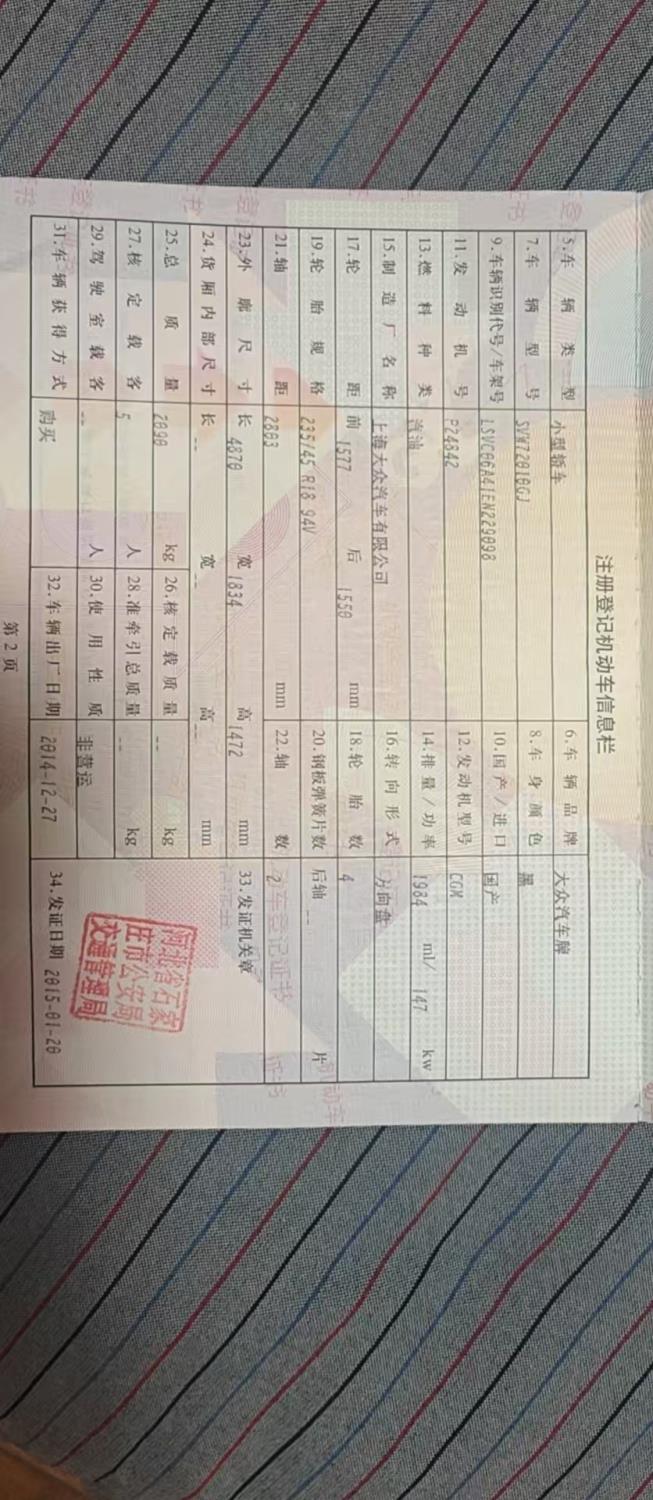 注册登记机动车信息栏
5.车辆类型 小型轿车 6.车辆品牌 大众汽车牌
7.车辆型号 SVW72010GJ 8.车身颜色 黑
9.车辆识别代号/车架号 LSVC06A41EN229098 10.国产/进口 国产
11.发动机号 P24842 12.发动机型号 CGM
13.燃料种类 汽油 14.排量/功率 1984 ml/ 147 kw
15.制造厂名称 上海大众汽车有限公司 16.转向形式 方向盘
17.轮距 前 1577 后 1550 mm 18.轮胎数 4
19.轮胎规格 235/45 R18 94V 20.钢板弹簧片数 后轴 -- 片
21.轴距 2803 mm 22.轴数 2
23.外廓尺寸 长 4870 宽 1834 高 1472 mm 33.发证机关章
24.货厢内部尺寸 长 -- 宽 -- 高 -- mm
25.总质量 2090 kg 26.核定载质量 -- kg
27.核定载客 5 人 28.准牵引总质量 -- kg
河北省石家
庄市公安局
交通管理局
29.驾驶室载客 -- 人 30.使用性质 非营运
31.车辆获得方式 购买 32.车辆出厂日期 2014-12-27 34.发证日期 2015-01-20
第2页